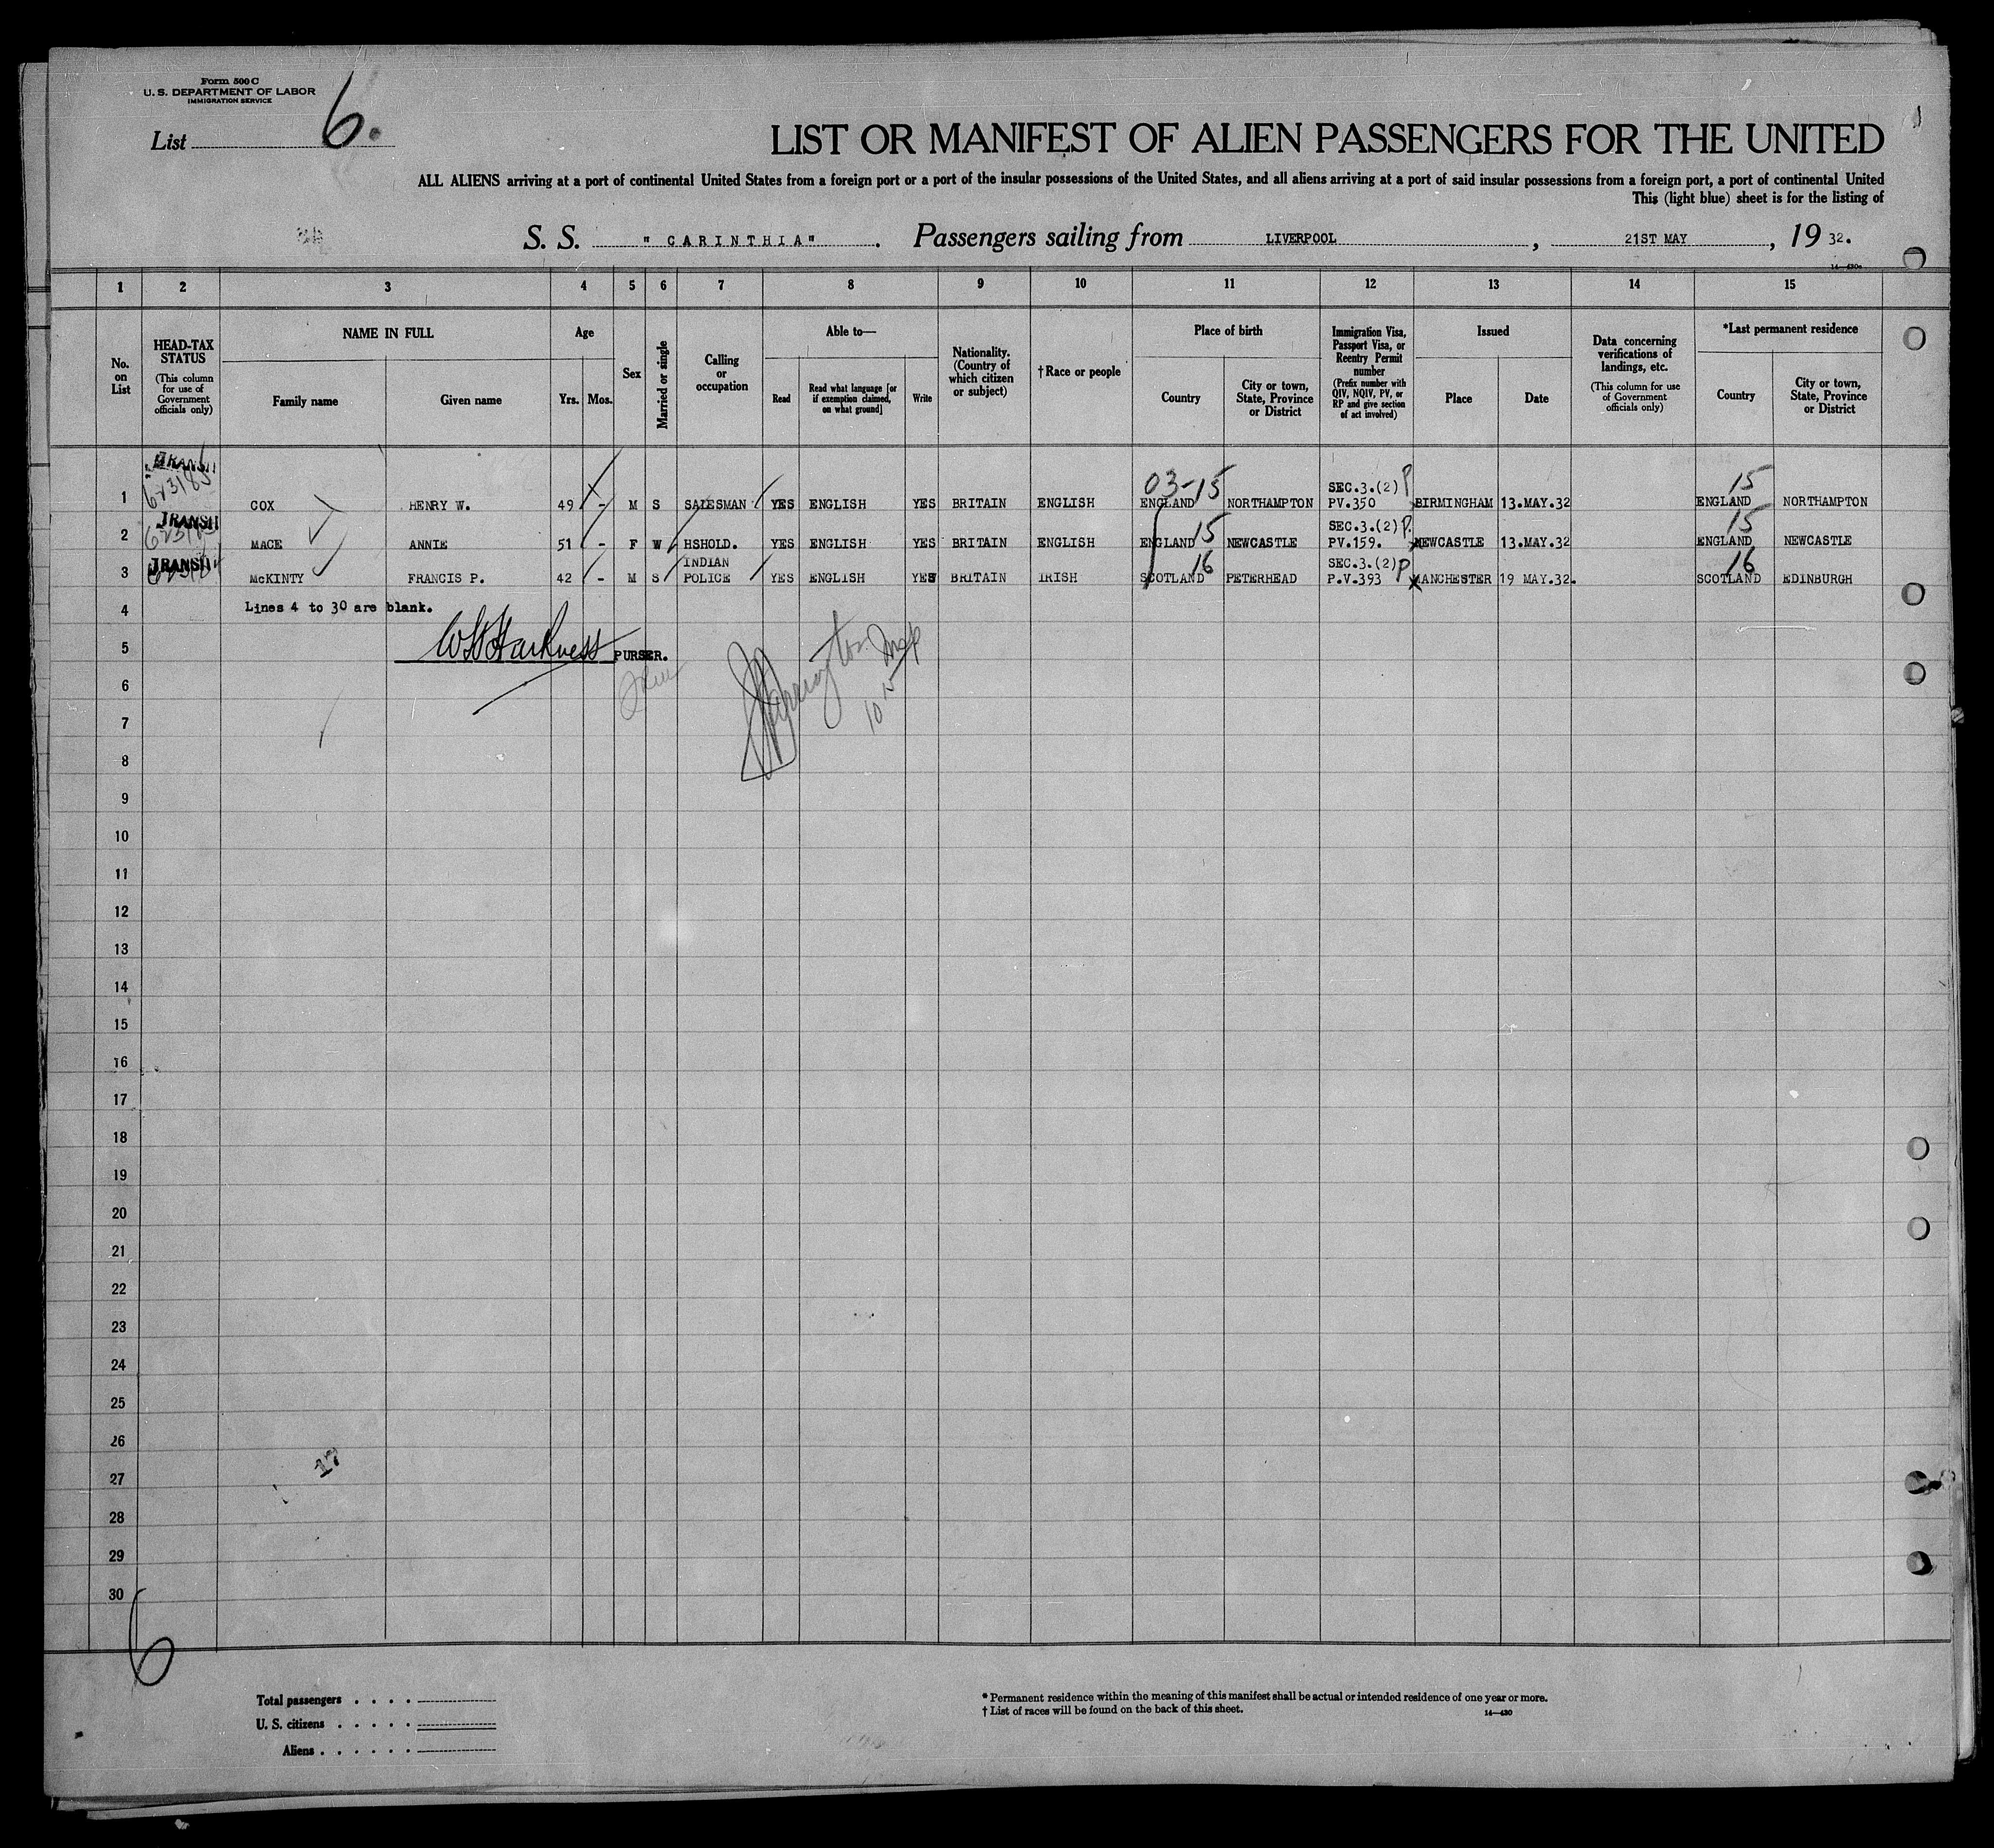 Form 500 C
U. S. DEPARTMENT OF LABOR
IMMIGRATION SERVICE
List 6.
LIST OR MANIFEST OF ALIEN PASSENGERS FOR THE UNITED
ALL ALIENS arriving at a port of continental United States from a foreign port or a port of the insular possessions of the United States, and all aliens arriving at a port of said insular possessions from a foreign port, a port of continental United
This (light blue) sheet is for the listing of
S. S. "CARINTHIA". Passengers sailing from LIVERPOOL, 21ST MAY, 19 32.
14—430a
1 2 3 4 5 6 7 8 9 10 11 12 13 14 15
No. on List
HEAD-TAX STATUS (This column for use of Government officials only)
NAME IN FULL
Family name Given name
Age
Yrs. Mos.
Sex
Married or single
Calling or occupation
Able to—
Read Read what language [or if exemption claimed, on what ground] Write
Nationality. (Country of which citizen or subject)
†Race or people
Place of birth
Country City or town, State, Province or District
Immigration Visa, Passport Visa, or Reentry Permit number (Prefix number with QIV, NQIV, PV, or RP and give section of act involved)
Issued
Place Date
Data concerning verifications of landings, etc. (This column for use of Government officials only)
*Last permanent residence
Country City or town, State, Province or District
TRANSIT 03-15 SEC.3.(2) P 15
1 COX HENRY W. 49 - M S SALESMAN YES ENGLISH YES BRITAIN ENGLISH ENGLAND NORTHAMPTON PV.350 BIRMINGHAM 13.MAY.32 ENGLAND NORTHAMPTON
TRANSIT 15 SEC.3.(2) P. 15
2 MACE ANNIE 51 - F W HSHOLD. YES ENGLISH YES BRITAIN ENGLISH ENGLAND NEWCASTLE PV.159. NEWCASTLE 13.MAY.32 ENGLAND NEWCASTLE
TRANSIT INDIAN 16 SEC.3.(2) P 16
3 McKINTY FRANCIS P. 42 - M S POLICE YES ENGLISH YES BRITAIN IRISH SCOTLAND PETERHEAD P.V.393 MANCHESTER 19 MAY.32. SCOTLAND EDINBURGH
4 Lines 4 to 30 are blank.
5 W Harkness PURSER.
6
7
8
9
10
11
12
13
14
15
16
17
18
19
20
21
22
23
24
25
26
27 17
28
29
30
6
Total passengers . . . .
U. S. citizens . . . . .
Aliens . . . . . .
* Permanent residence within the meaning of this manifest shall be actual or intended residence of one year or more.
† List of races will be found on the back of this sheet.
14—430